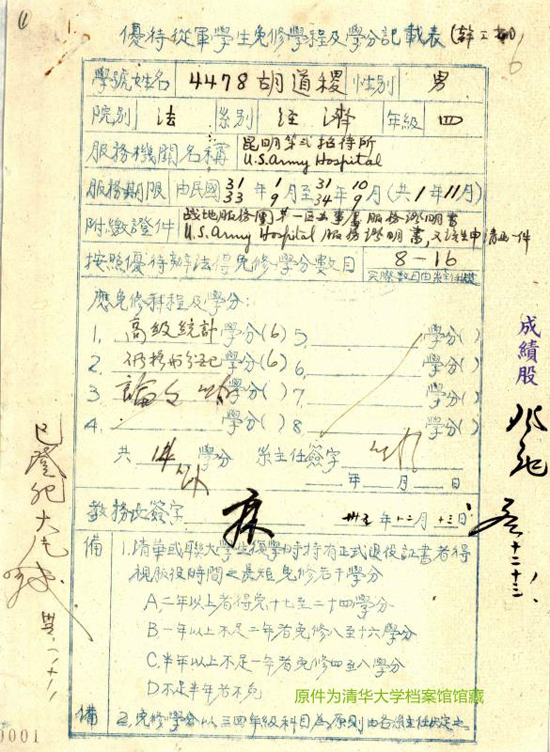 優待從軍學生免修學程及學分記載表
學號姓名 4478 胡道稷 性別 男
院別 法 系別 经濟 年級 四
服務機關名稱 昆明第弍招待所
U.S. Army Hospital
服務期限 由民國 31 33 年 1 9 月至 31 34 年 10 9 月(共1年11月)
附繳證件 战地服務團第一區办事處服務證明書
U.S. Army Hospital 服務證明書,又该生申請函一件
按照優待辦法得免修學分數目 8-16
實際數目由系主任核定
應免修科程及學分:
1. 高級統計 學分(6) 5. 學分( )
2. 學分(6) 6. 學分( )
3 論文 學分( ) 7. 學分( )
4. 學分( ) 8. 學分( )
共 學分 系主任簽字
年 月 日
教務處簽字 卅五年十二月十三日
備 1.清華或聯大學生復學時持有正式退役証書者得
視服役時間之長短免修若干學分
A.二年以上者得免十七至二十四學分
B一年以上不足二年者免修八至十六學分
C.半年以上不足一年者免修四至八學分
D不足半年者不免
備 2.免修學分以三四年級科目為原則由各系主任決定之
成績股
十二、十三
已登記大片
0001
原件为清华大学档案馆馆藏